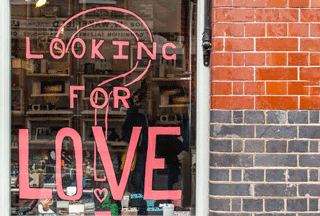 LOOKING
FOR
LOVE